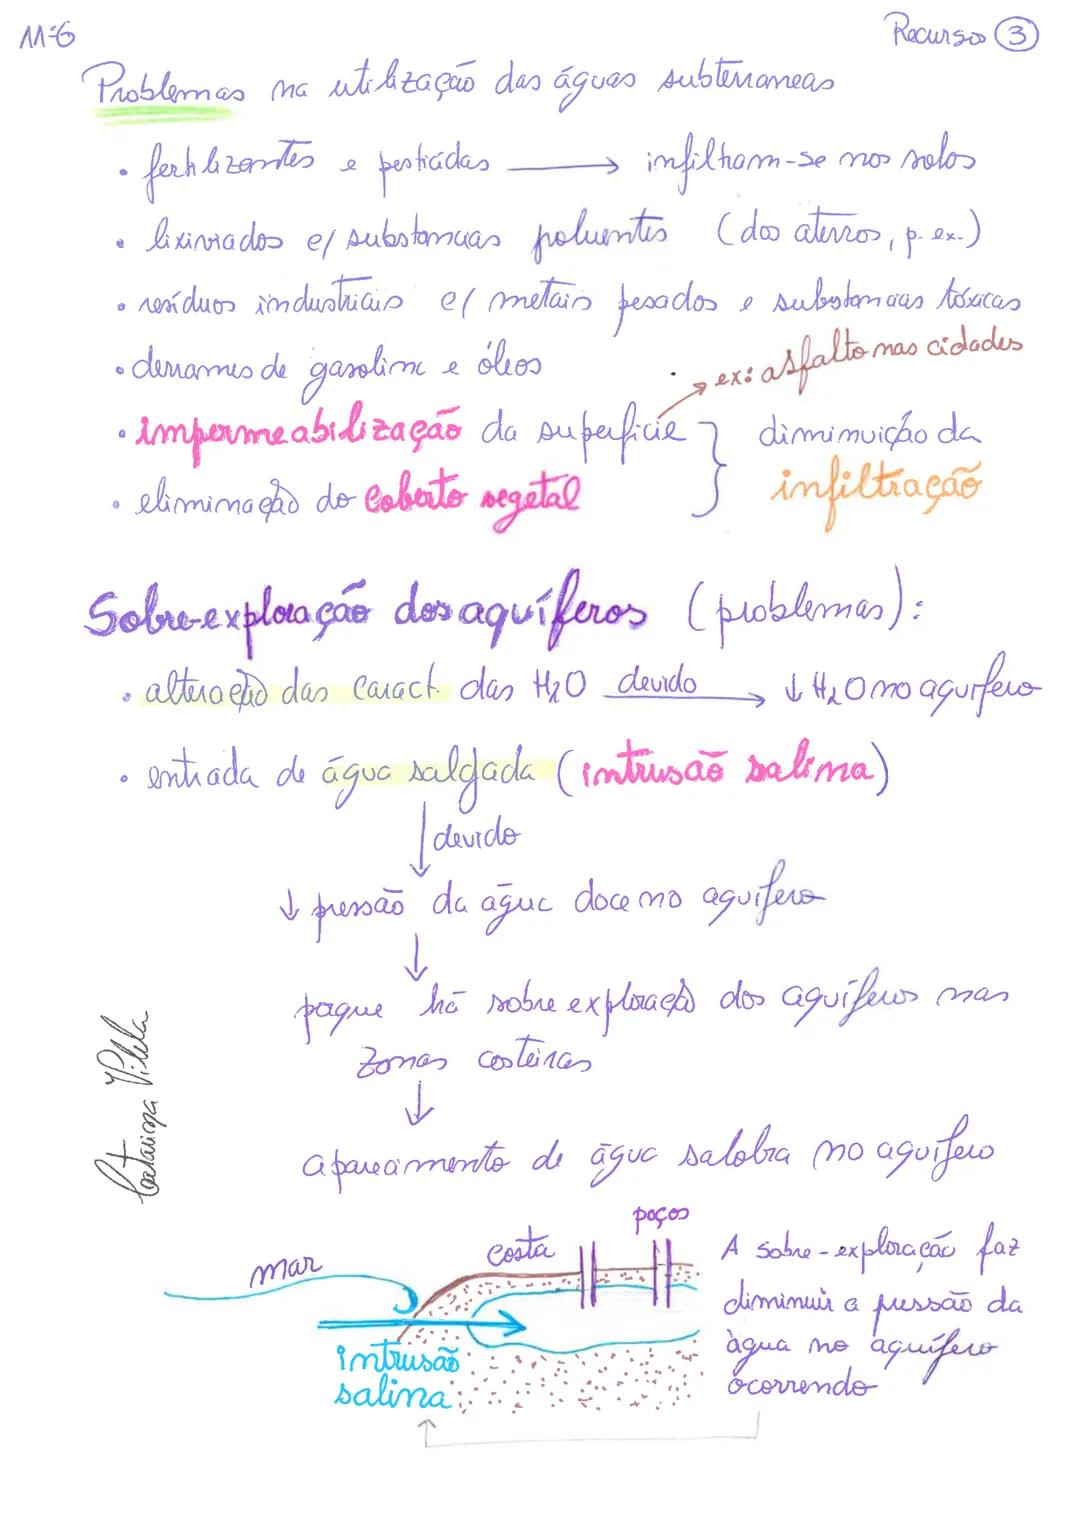 11º6
Recursos 3
Problemas na utilização das águas subterraneas
• fertilizantes e pesticidas → infiltram-se nos solos
• lixiviados c/ substancias poluentes (dos aterros, p. ex.)
• resíduos industriais c/ metais pesados e substancias tóxicas
• derrames de gasolina e óleos
ex: asfalto nas cidades
• impermeabilização da superfície } diminuição da
• eliminação do coberto vegetal infiltração
Sobre-exploração dos aquíferos (problemas):
• alteração das caract. das H2O devido → ↓ H2O no aquífero
• entrada de água salgada (intrusão salina)
↓ devido
↓ pressão da água doce no aquífero
↓
porque há sobre exploração dos aquíferos nas
zonas costeiras
↓
aparecimento de água salobra no aquífero
Catarina Vilela
poços
mar
costa
intrusão
salina
A sobre-exploração faz
diminuir a pressão da
água no aquífero
ocorrendo